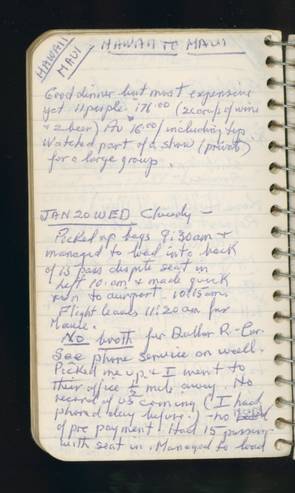 HAWAII
MAUI
HAWAII TO MAUI
Good dinner but most expensive
yet 11 people 171.00 (2 carafs of wine
+ 2 beer) Av 16.00/ including tip
Watched part of a show (private)
for a large group.
JAN 20 WED Cloudy –
Picked up bags 9:30am +
managed to load into back
of 15 pass dispite seat in
left 10 am + made quick
run to airport – 10:15am.
Flight leaves 11:20am for
Maui.
No booth for Dollar R-Car.
See phone service on wall.
Picked me up + I went to
their office ½ mile away. No
record of us coming (I had
phoned day before.) – no
of pre payment. Had 15 passen-
with seat in. Managed to load